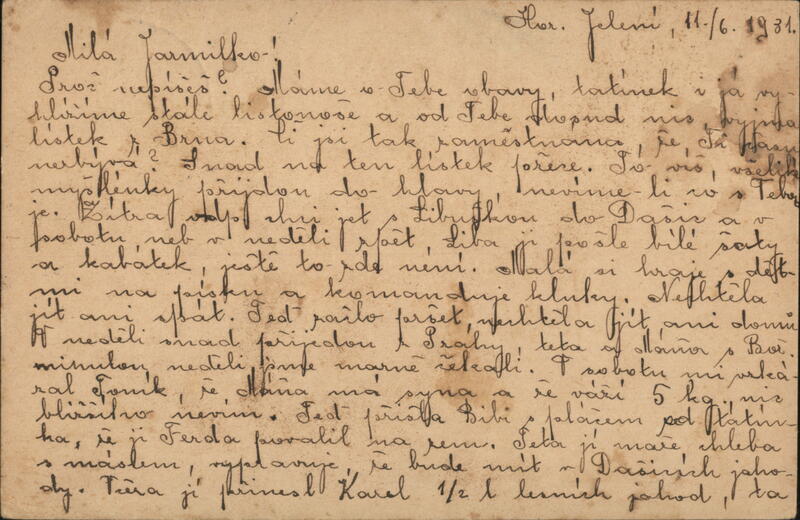 Hor. Jelení, 11./6. 1931.
Milá Jarmilko!
Proč nepíšeš? Máme o Tebe obavy, tatínek i já vy-
hlížíme stále listonoše a od Tebe dosud nic, vyjma
lístek z Brna. Li jsi tak zaměstnána, že Ti času
nezbývá? Snad na ten lístek přece. To víš, všelik
myšlénky přijdou do hlavy, nevíme-li co s Tebou
je. Zítra odp chci jet s Libuškou do Dašic a v
sobotu neb v neděli zpět, Liba jí pošle bílé šaty
a kabátek, ještě to zde není. Malá si hraje s dět-
mi na písku a komanduje kluky. Nechtěla
jít ani spát. Teď začlo pršet, nechtěla jít ani domů
V neděli snad přijedou z Prahy, teta a Máňa s Bož.
minulou neděli jsme marně čekali. V sobotu mi vzká-
zal Toník, že Máňa má syna a že váží 5 kg., nic
bližšího nevím. Teď přišla Bibi s pláčem od tatín-
ka, že ji Ferda povalil na zem. Teta jí maže chleba
s máslem, vypravuje, že bude mít v Dašicích jaho-
dy. Včera jí přinesl Karel 1/2 l lesních jahod, ta